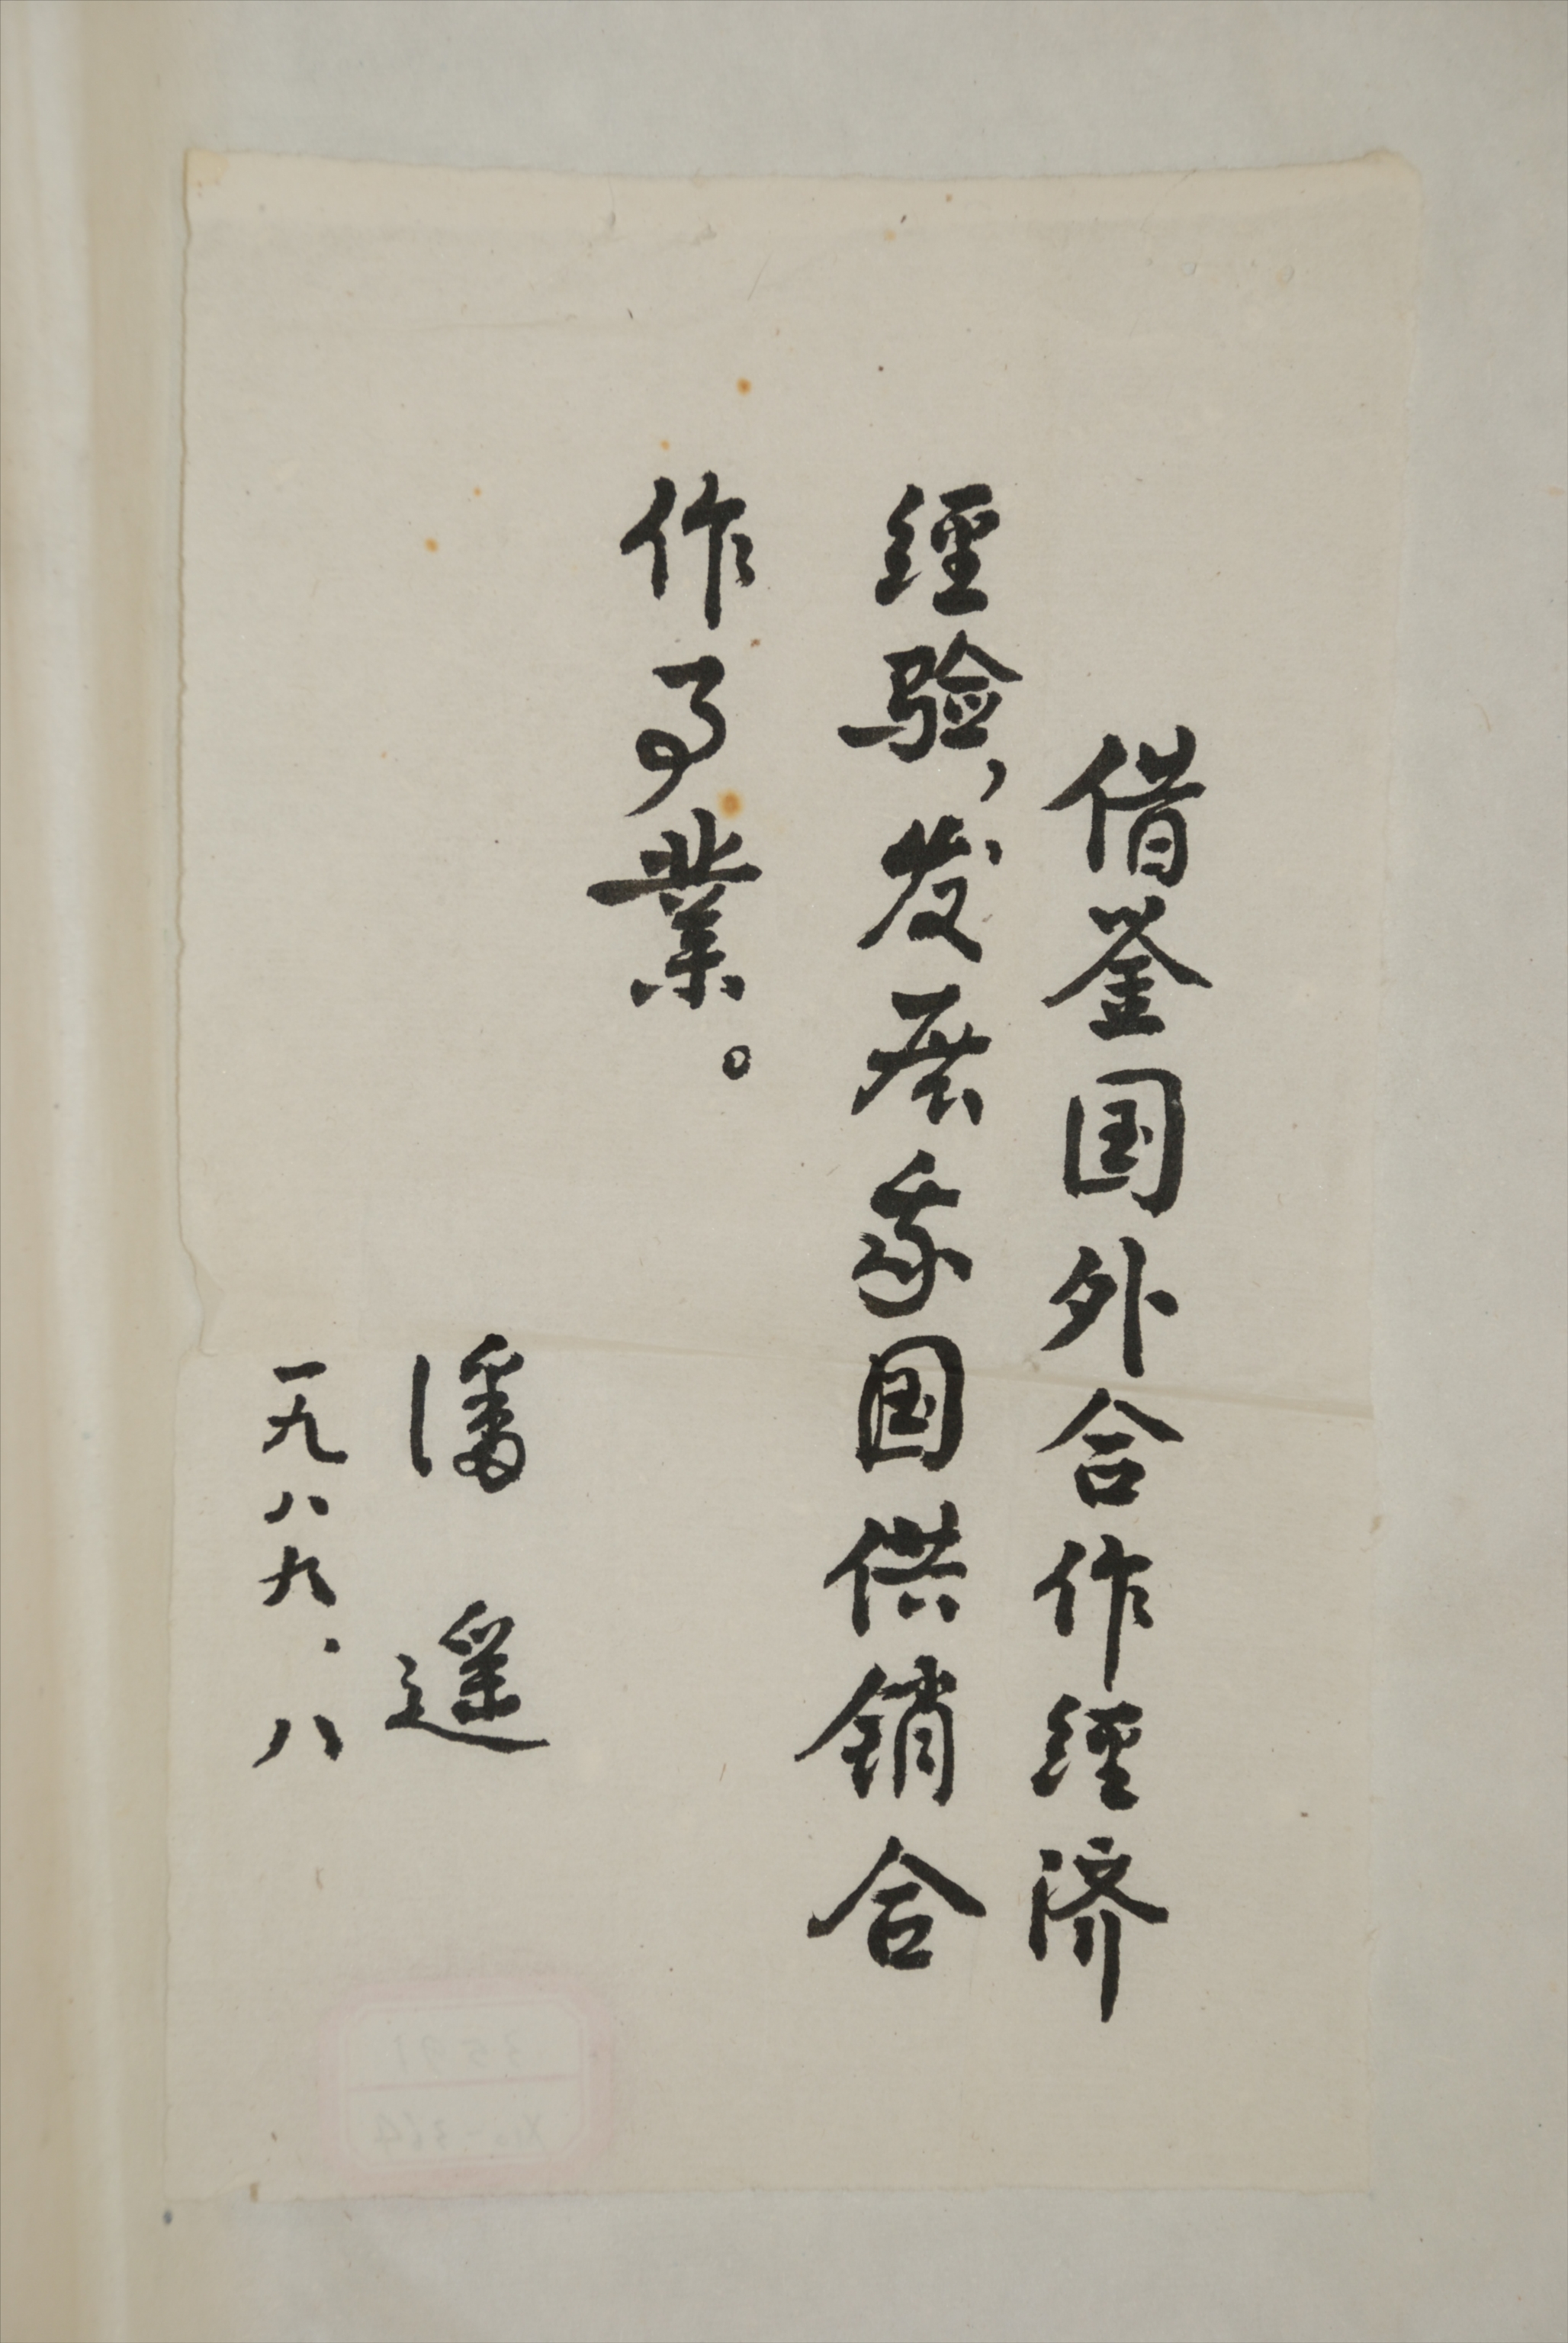 借鉴国外合作經济
經验，发展我国供销合
作事業。
潘遥
一九八九.八